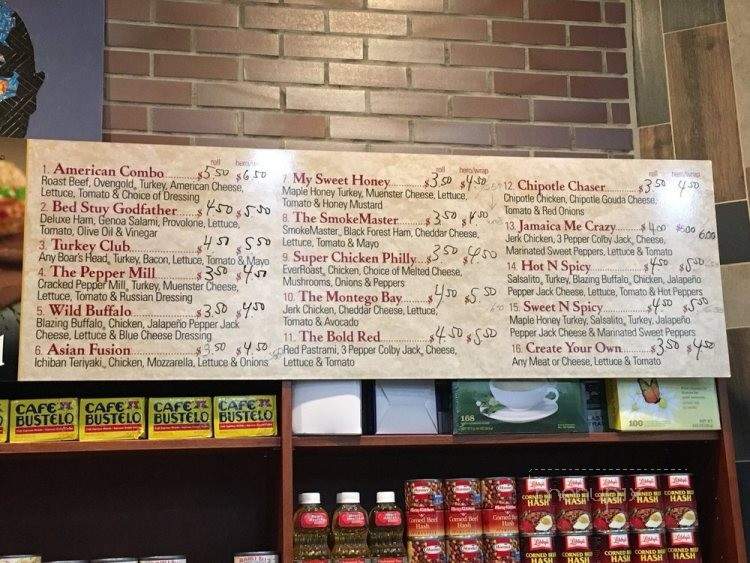 roll hero/wrap
1. American Combo.......$5.50 $6.50
Roast Beef, Ovengold, Turkey, American Cheese,
Lettuce, Tomato & Choice of Dressing
2. Bed Stuy Godfather.....$4.50 $5.50
Deluxe Ham, Genoa Salami, Provolone, Lettuce,
Tomato, Olive Oil & Vinegar
3. Turkey Club....................4.50 5.50
Any Boar's Head, Turkey, Bacon, Lettuce, Tomato & Mayo
4. The Pepper Mill..........$3.50 $4.50
Cracked Pepper Mill, Turkey, Muenster Cheese,
Lettuce, Tomato & Russian Dressing
5. Wild Buffalo.................$3.50 $4.50
Blazing Buffalo, Chicken, Jalapeño Pepper Jack
Cheese, Lettuce & Blue Cheese Dressing
6. Asian Fusion................$3.50 $4.50
Ichiban Teriyaki, Chicken, Mozzarella, Lettuce & Onions
roll hero/wrap
7. My Sweet Honey..........$3.50 $4.50
Maple Honey Turkey, Muenster Cheese, Lettuce,
Tomato & Honey Mustard
8. The SmokeMaster........$3.50 $4.50
SmokeMaster, Black Forest Ham, Cheddar Cheese,
Lettuce, Tomato & Mayo
9. Super Chicken Philly....3.50 $4.50
EverRoast, Chicken, Choice of Melted Cheese,
Mushrooms, Onions & Peppers
10. The Montego Bay.......$4.50 $5.50
Jerk Chicken, Cheddar Cheese, Lettuce,
Tomato & Avocado
11. The Bold Red..............$4.50 $5.50
Red Pastrami, 3 Pepper Colby Jack, Cheese,
Lettuce & Tomato
roll hero/wrap
12. Chipotle Chaser........$3.50 4.50
Chipotle Chicken, Chipotle Gouda Cheese,
Tomato & Red Onions
13. Jamaica Me Crazy......$4.00 $5.00 6.00
Jerk Chicken, 3 Pepper Colby Jack, Cheese,
Marinated Sweet Peppers, Lettuce & Tomato
14. Hot N Spicy................$4.50 $5.50
Salsalito, Turkey, Blazing Buffalo, Chicken, Jalapeño
Pepper Jack Cheese, Lettuce, Tomato & Hot Peppers
15. Sweet N Spicy............$4.50 $5.50
Maple Honey Turkey, Salsalito, Turkey, Jalapeño
Pepper Jack Cheese & Marinated Sweet Peppers
16. Create Your Own.......$3.50 $4.50
Any Meat or Cheese, Lettuce & Tomato
CAFÉ BUSTELO CAFÉ BUSTELO CAFÉ BUSTELO CAFÉ BUSTELO
168
100
Hormel
Mary Kitchen
Corned Beef
Hash
Libby's
CORNED BEEF
HASH